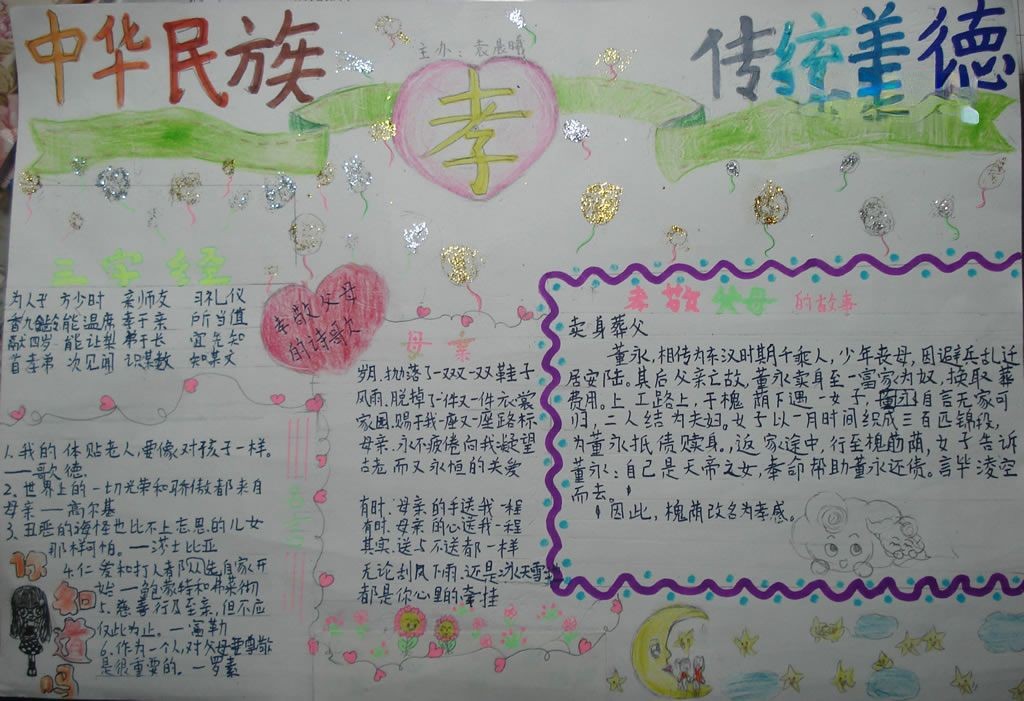 中华民族
主办：袁晨曦
孝
传统美德
三字经
为人子 方少时 亲师友 习礼仪
香九龄 能温席 孝于亲 所当值
融四岁 能让梨 弟于长 宜先知
首孝弟 次见闻 识某数 知某文
1、我的体贴老人,要像对孩子一样。
——歌德
2、世界上的一切光荣和骄傲都来自
母亲——高尔基
3、丑恶的海怪也比不上忘恩的儿女
那样可怕。——莎士比亚
4、仁爱和打人者都从先自家开
始——鲍蒙特和弗莱彻
5、慈善行及至亲,但不应
仅此为止。——富勒
6、作为一个人,对父母要尊敬
是很重要的。——罗素
你知道吗
孝敬父母
的诗歌
母亲
岁月,抛落了一双又一双鞋子
风雨,脱掉了一件又一件衣裳
家园,赐于我一座又一座路标
母亲,永不疲倦向我凝望
古老而又永恒的关爱
有时,母亲的手送我一程
有时,母亲的心送我一程
其实,送与不送都一样
无论刮风下雨,还是冰天雪地
都是你心里的牵挂
孝敬父母的故事
卖身葬父
董永,相传为东汉时期千乘人,少年丧母,因避兵乱迁
居安陆。其后父亲亡故,董永卖身至一富家为奴,换取葬
费用。上工路上,于槐荫下遇一女子,自言无家可
归,二人结为夫妇。女子以一月时间织成三百匹锦缎,
为董永抵债赎身。返家途中,行至槐荫,女子告诉
董永：自己是天帝之女,奉命帮助董永还债。言毕凌空
而去。
因此,槐荫改名为孝感。